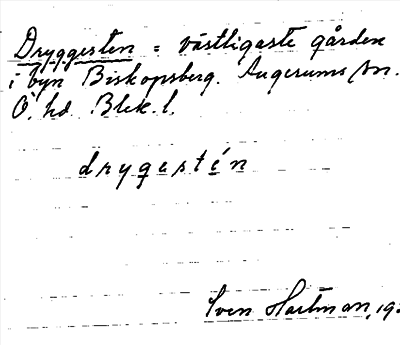 Dryggesten = västligaste gården
i byn Biskopsberg. Augerums sn.
Ö. hd. Blek. l.
drygestén
Sven Hartman, 19